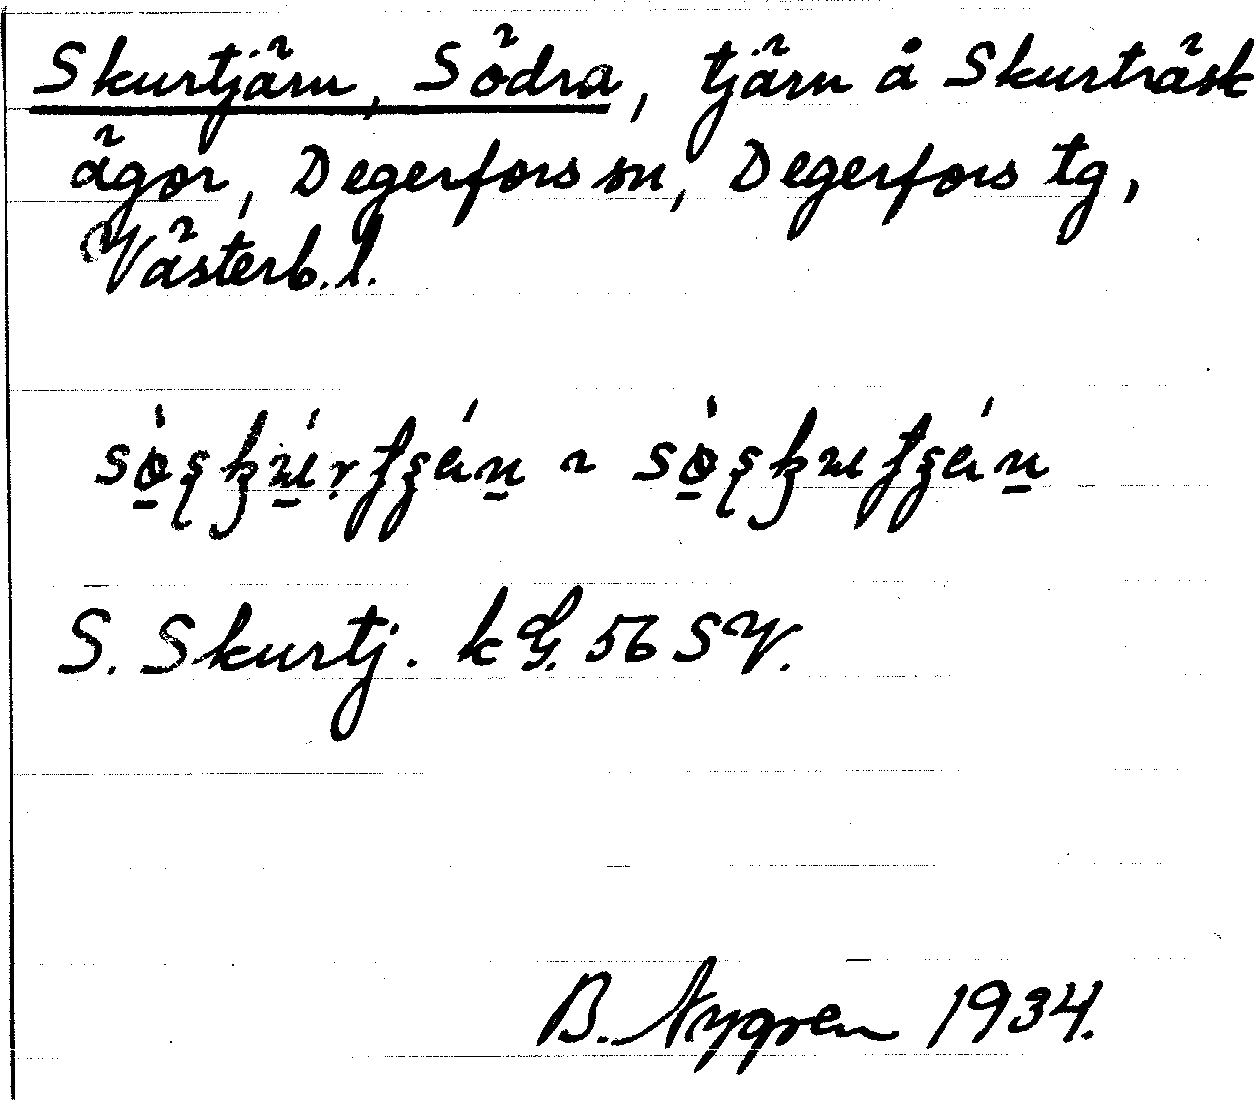 Skurtjärn, Södra, tjärn å Skurträsk
ägor, Degerfors sn, Degerfors tg,
Västerb. l.
S. Skurtj. kG. 56 SV.
B. Nygren 1934.